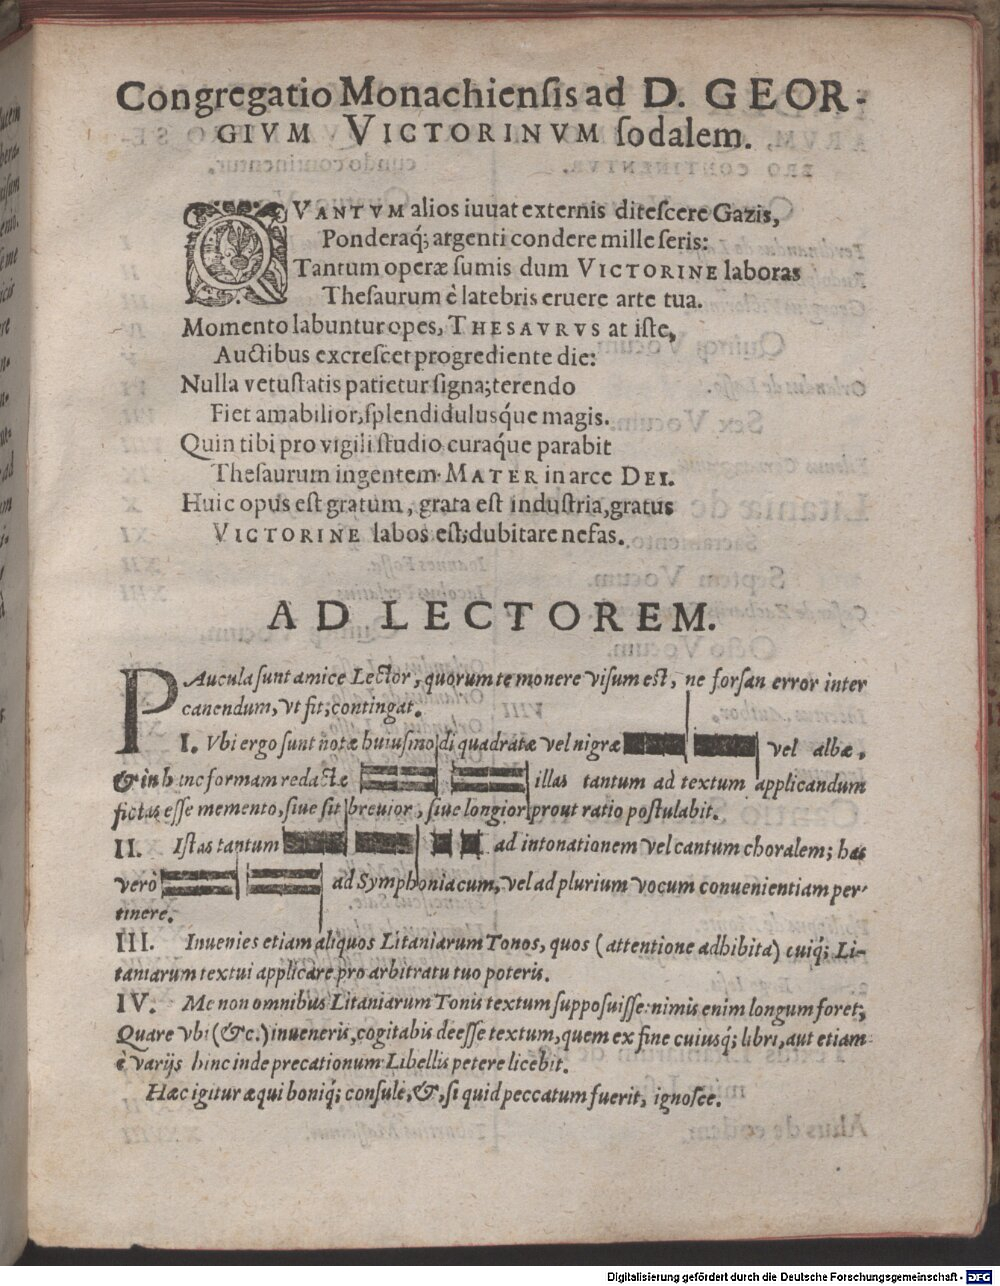 Congregatio Monachiensis ad D. GEOR-
GIVM VICTORINVM sodalem.
QVANTVM alios iuuat externis ditescere Gazis,
Ponderaq́; argenti condere mille seris:
Tantum operæ sumis dum VICTORINE laboras
Thesaurum è latebris eruere arte tua.
Momento labuntur opes, THESAVRVS at iste,
Auctibus excrescet progrediente die:
Nulla vetustatis patietur signa; terendo
Fiet amabilior, splendidulusq́ue magis.
Quin tibi pro vigili studio curaq́ue parabit
Thesaurum ingentem MATER in arce DEI.
Huic opus est gratum, grata est industria, gratus
VICTORINE labos est; dubitare nefas.
AD LECTOREM.
PAucula sunt amice Lector, quorum te monere visum est, ne forsan error inter
canendum, vt fit; contingat.
I. Vbi ergo sunt notæ huiusmodi quadratæ vel nigræ vel albæ,
& in hanc formam redactæ illas tantum ad textum applicandum
fictas esse memento, siue sit breuior, siue longior prout ratio postulabit.
II. Istas tantum ad intonationem vel cantum choralem; has
verò ad Symphoniacum, vel ad plurium vocum conuenientiam per-
tinere.
III. Inuenies etiam aliquos Litaniarum Tonos, quos (attentione adhibita) cuiq́; Li-
taniarum textui applicare pro arbitratu tuo poteris.
IV. Me non omnibus Litaniarum Tonis textum supposuisse: nimis enim longum foret;
Quare vbi (&c.) inueneris, cogitabis deesse textum, quem ex fine cuiusq́; libri, aut etiam
è varijs hinc inde precationum Libellis petere licebit.
Hæc igitur æqui boniq́; consule, &, si quid peccatum fuerit, ignosce.
Digitalisierung gefördert durch die Deutsche Forschungsgemeinschaft - DFG